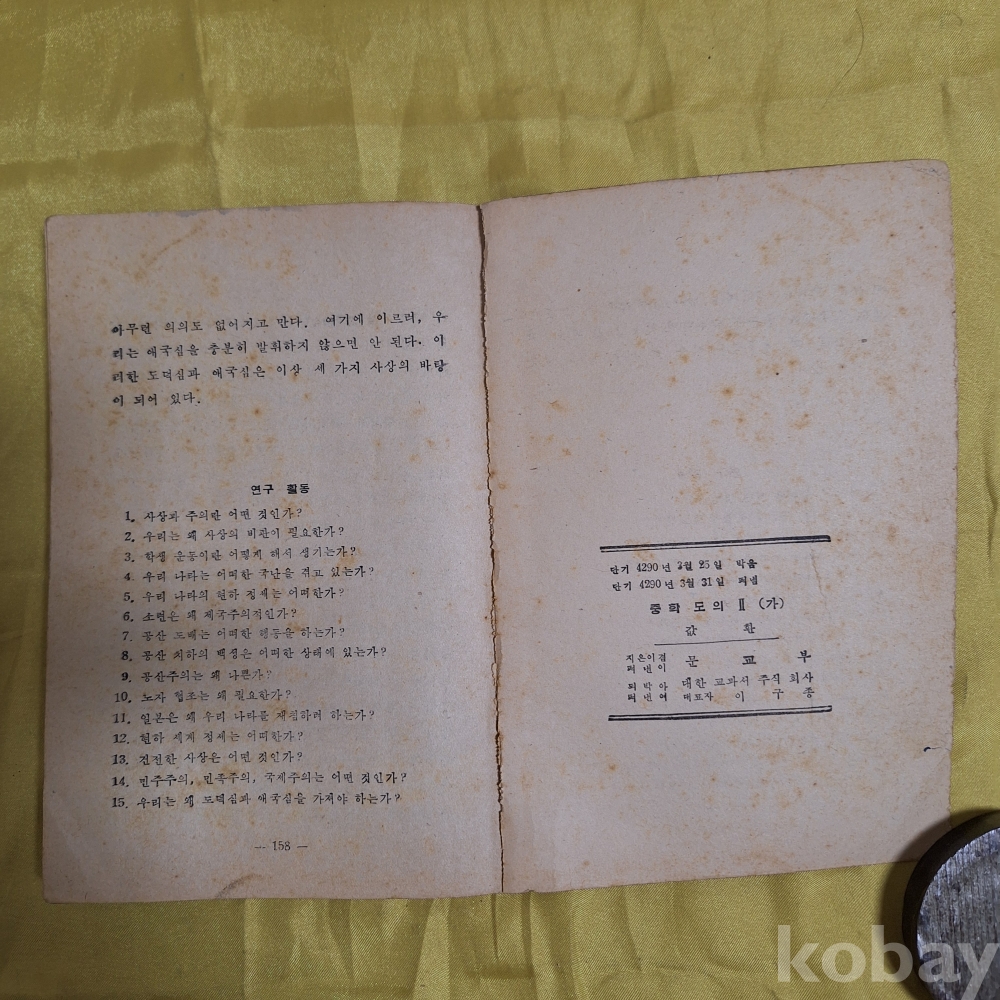 아무런 의의도 없어지고 만다. 여기에 이르러, 우
리는 애국심을 충분히 발휘하지 않으면 안 된다. 이
러한 도덕심과 애국심은 이상 세 가지 사상의 바탕
이 되어 있다.
연구 활동
1. 사상과 주의란 어떤 것인가?
2. 우리는 왜 사상의 비판이 필요한가?
3. 학생 운동이란 어떻게 해서 생기는가?
4. 우리 나라는 어떠한 국난을 겪고 있는가?
5. 우리 나라의 현하 정세는 어떠한가?
6. 소련은 왜 제국주의적인가?
7. 공산 도배는 어떠한 행동을 하는가?
8. 공산 치하의 백성은 어떠한 상태에 있는가?
9. 공산주의는 왜 나쁜가?
10. 노자 협조는 왜 필요한가?
11. 일본은 왜 우리 나라를 재침하려 하는가?
12. 현하 세계 정세는 어떠한가?
13. 건전한 사상은 어떤 것인가?
14. 민주주의, 민족주의, 국제주의는 어떤 것인가?
15. 우리는 왜 도덕심과 애국심을 가져야 하는가?
— 158 —
단기 4290년 3월 25일 박음
단기 4290년 3월 31일 펴냄
중학 도의 Ⅱ (가)
값 환
지은이겸
펴낸이 문교부
박아
펴낸이 대한 교과서 주식 회사
대표자 이구종
kobay